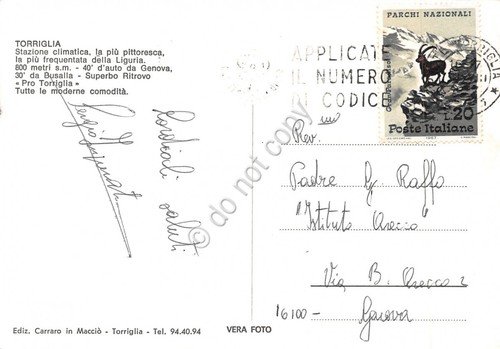 TORRIGLIA
Stazione climatica, la più pittoresca,
la più frequentata della Liguria.
800 metri s.m. - 40' d'auto da Genova,
30' da Busalla - Superbo Ritrovo
« Pro Torriglia »
Tutte le moderne comodità.
Cordiali saluti
PARCHI NAZIONALI
L.20
Poste Italiane
APPLICATE
IL NUMERO
DI CODICE
Rev.mo
Padre G. Raffo
"Istituto
Via B.
16100- Genova
do not copy
Ediz. Carraro in Macciò - Torriglia - Tel. 94.40.94
VERA FOTO